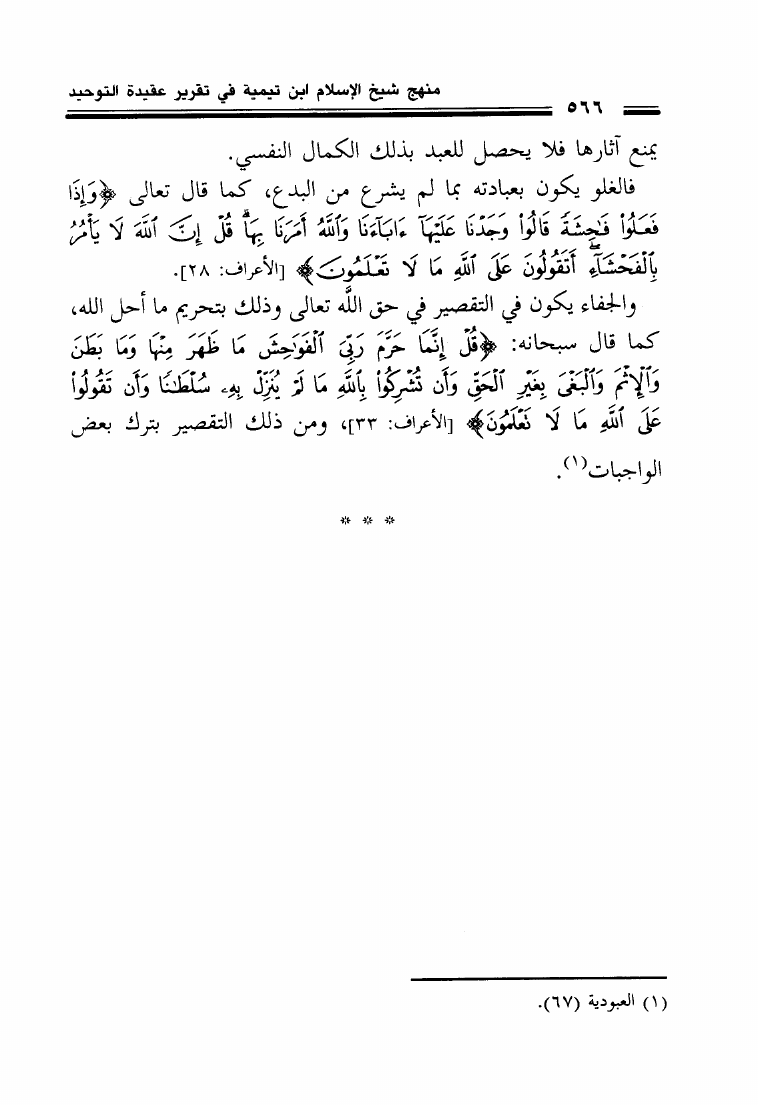 منهج شيخ الإسلام ابن تيمية في تقرير عقيدة التوحيد
٥٦٦
يمنع آثارها فلا يحصل للعبد بذلك الكمال النفسي.
فالغلو يكون بعبادته بما لم يشرع من البدع، كما قال تعالى ﴿وَإِذَا
فَعَلُوا۟ فَـٰحِشَةً قَالُوا۟ وَجَدْنَا عَلَيْهَآ ءَابَآءَنَا وَٱللَّهُ أَمَرَنَا بِهَا ۗ قُلْ إِنَّ ٱللَّهَ لَا يَأْمُرُ
بِٱلْفَحْشَآءِ ۖ أَتَقُولُونَ عَلَى ٱللَّهِ مَا لَا تَعْلَمُونَ﴾ [الأعراف: ٢٨].
والجفاء يكون في التقصير في حق اللَّه تعالى وذلك بتحريم ما أحل الله،
كما قال سبحانه: ﴿قُلْ إِنَّمَا حَرَّمَ رَبِّىَ ٱلْفَوَٰحِشَ مَا ظَهَرَ مِنْهَا وَمَا بَطَنَ
وَٱلْإِثْمَ وَٱلْبَغْىَ بِغَيْرِ ٱلْحَقِّ وَأَن تُشْرِكُوا۟ بِٱللَّهِ مَا لَمْ يُنَزِّلْ بِهِۦ سُلْطَـٰنًا وَأَن تَقُولُوا۟
عَلَى ٱللَّهِ مَا لَا تَعْلَمُونَ﴾ [الأعراف: ٣٣]، ومن ذلك التقصير بترك بعض
الواجبات(١).
* * *
(١) العبودية (٦٧).